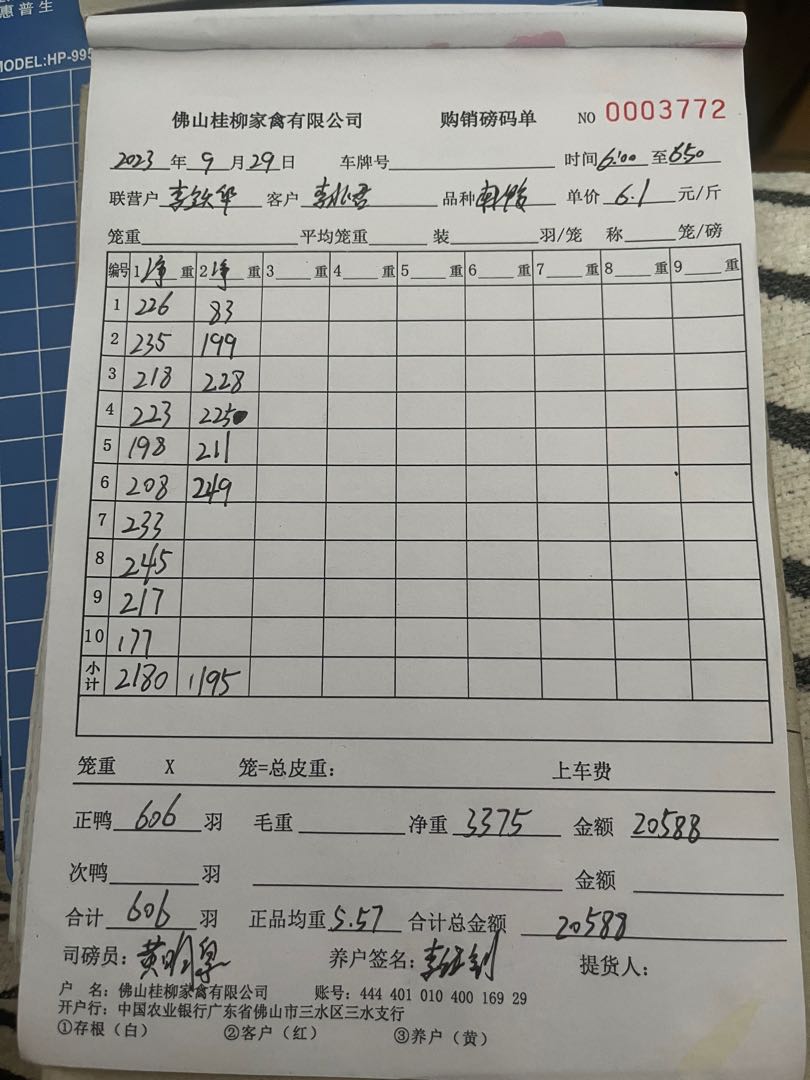 惠普生
MODEL:HP-995
佛山桂柳家禽有限公司 购销磅码单 NO 0003772
2023年9月29日 车牌号 时间6:00至6:50
联营户 李 华 客户 李 君 品种 鸭 单价 6.1 元/斤
笼重 平均笼重 装 羽/笼 称 笼/磅
编号 1净重 2净重 3 重 4 重 5 重 6 重 7 重 8 重 9 重
1 226 83
2 235 199
3 218 228
4 223 225
5 198 211
6 208 249
7 233
8 245
9 217
10 177
小计 2180 1195
笼重 X 笼=总皮重: 上车费
正鸭 606 羽 毛重 净重 3375 金额 20588
次鸭 羽 金额
合计 606 羽 正品均重 5.57 合计总金额 20588
司磅员: 黄明 养户签名: 李 钊 提货人:
户 名: 佛山桂柳家禽有限公司 账号: 444 401 010 400 169 29
开户行: 中国农业银行广东省佛山市三水区三水支行
①存根(白) ②客户(红) ③养户(黄)